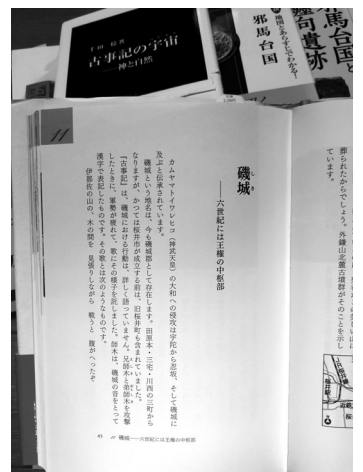 千田 稔 著
古事記の宇宙
―神と自然
地図とあらすじでわかる!
邪馬台国
邪馬台国と
纒向遺跡
葬られたからでしょう。外鎌山北麓古墳群がそのことを示し
ています。
11
磯城
しき
――六世紀には王権の中枢部
カムヤマトイワレヒコ(神武天皇)の大和への侵攻は宇陀から忍坂、そして磯城に
及ぶと伝承されています。
磯城という地名は、今も磯城郡として存在します。田原本・三宅・川西の三町から
なりますが、かつては桜井市が成立する前は、旧桜井町も含まれていました。
『古事記』は、磯城における行動は、詳しく語っていません。兄師木と弟師木を攻撃
したときに、軍勢が疲れて、歌にその様子を託しました。師木は、磯城の音をとって
漢字で表記したものです。その歌とは次のようなものです。
伊那佐の山の、木の間を 見張りしながら 戦うと 腹がへったぞ
JR桜井線
桜井駅
45 11 磯城――六世紀には王権の中枢部